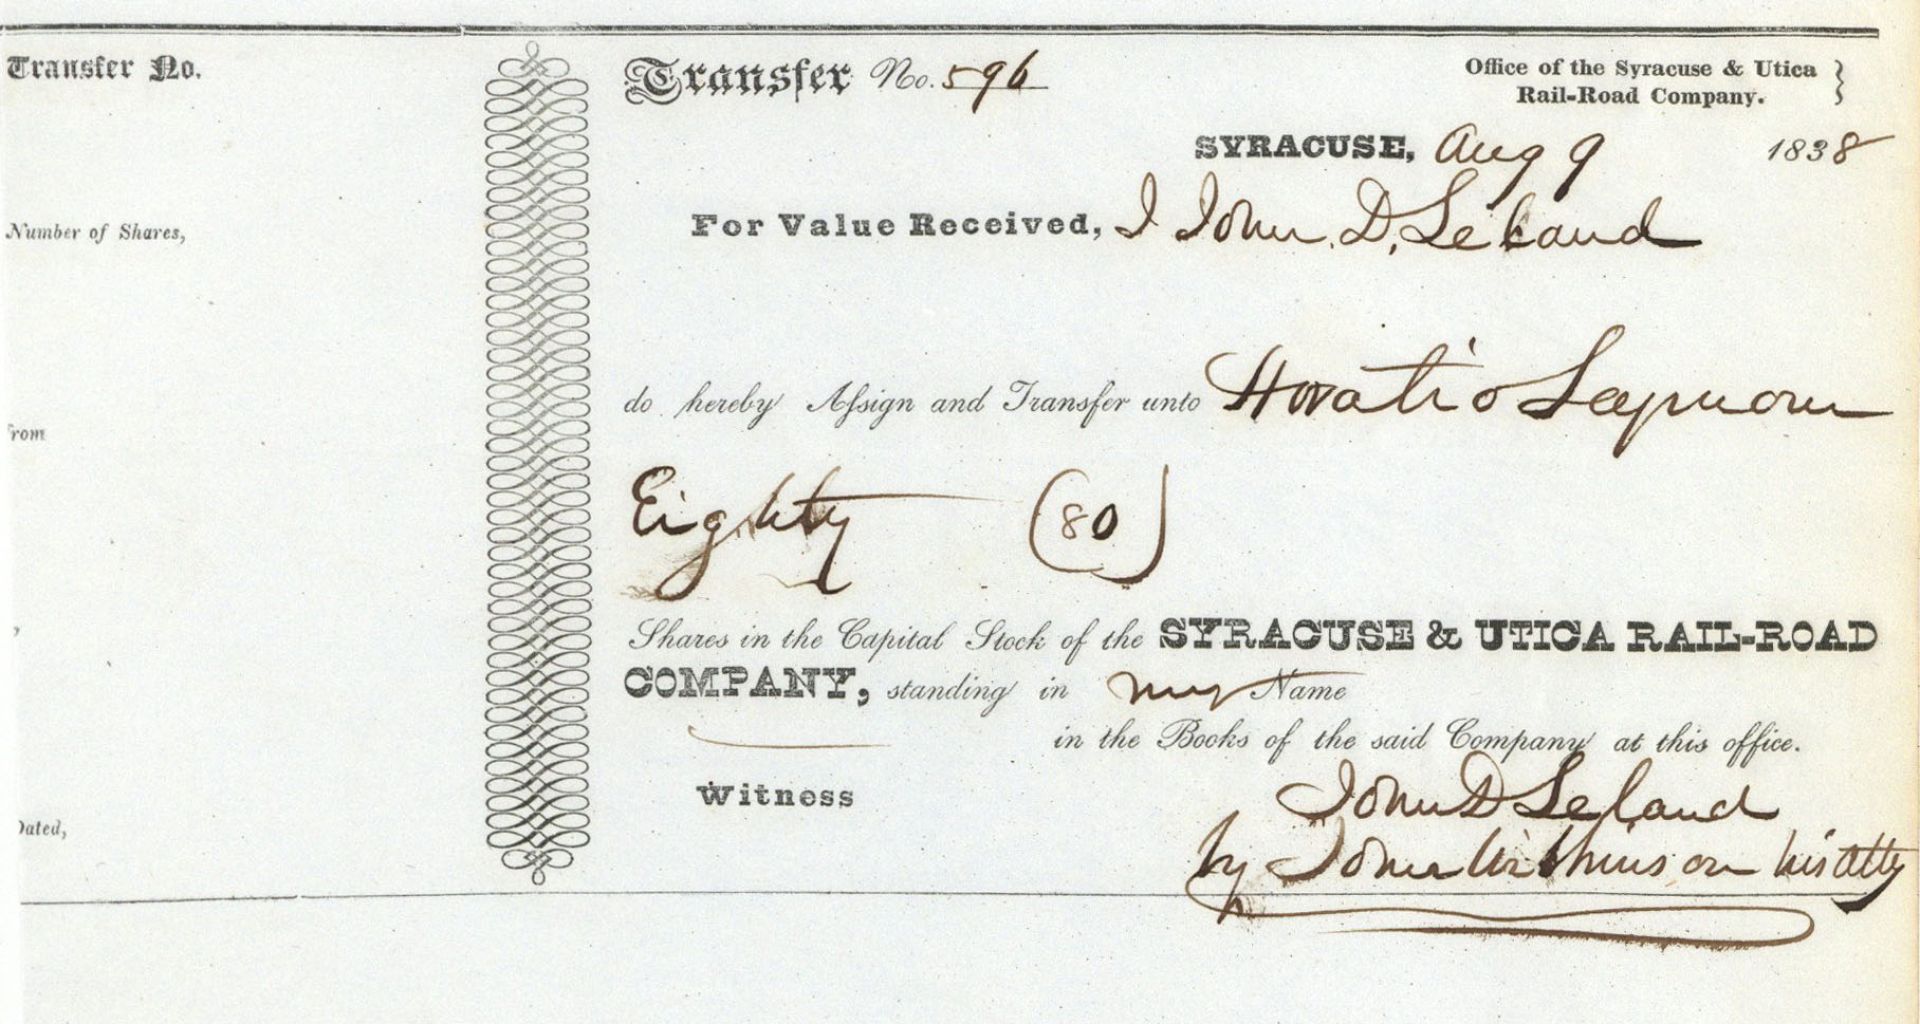 Transfer No.
Number of Shares,
from
Dated,
Transfer No. 596
Office of the Syracuse & Utica
Rail-Road Company.
SYRACUSE, Aug 9 1838
For Value Received, I John D. Leland
do hereby Assign and Transfer unto Horatio Seymour
Eighty (80)
Shares in the Capital Stock of the SYRACUSE & UTICA RAIL-ROAD
COMPANY, standing in my Name
in the Books of the said Company at this office.
Witness
John D Leland
by John Wilkinson his Atty